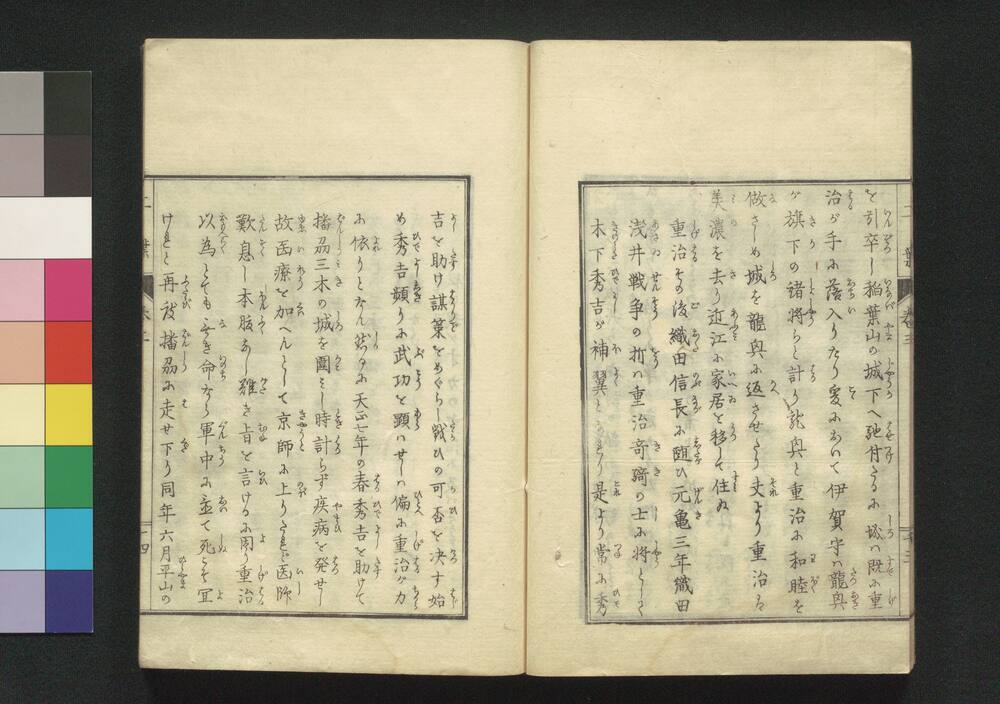 を引卒し稲葉山の城下へ馳付たるに城ハ既に重
治が手に落入りたり爰において伊賀守ハ龍興
が旗下の諸将らと計り龍興と重治に和睦を
做さしめ城を龍興に返させたり丈より重治ハ
美濃を去り近江に家居を移して住ぬ
重治その後織田信長に随ひ元亀三年織田
浅井戦争の折ハ重治奇的の士に将として
木下秀吉が補翼となれり是より常に秀
吉を助け謀策をめぐらし戦ひの可否を决す始
め秀吉頻りに武功を顕ハせしハ偏に重治が力
に依りとなん然るに天正七年の春秀吉を助けて
播刕三木の城を囲ミし時計らず疾病を発せし
故医療を加へんとして京師に上りたれど医師
歎息し本腹なし難き旨を言けるに因り重治
以為とてもなき命なら軍中に並て死こそ宜
けれと再び播刕に走せ下り同年六月平山の
二葉
巻三
十四